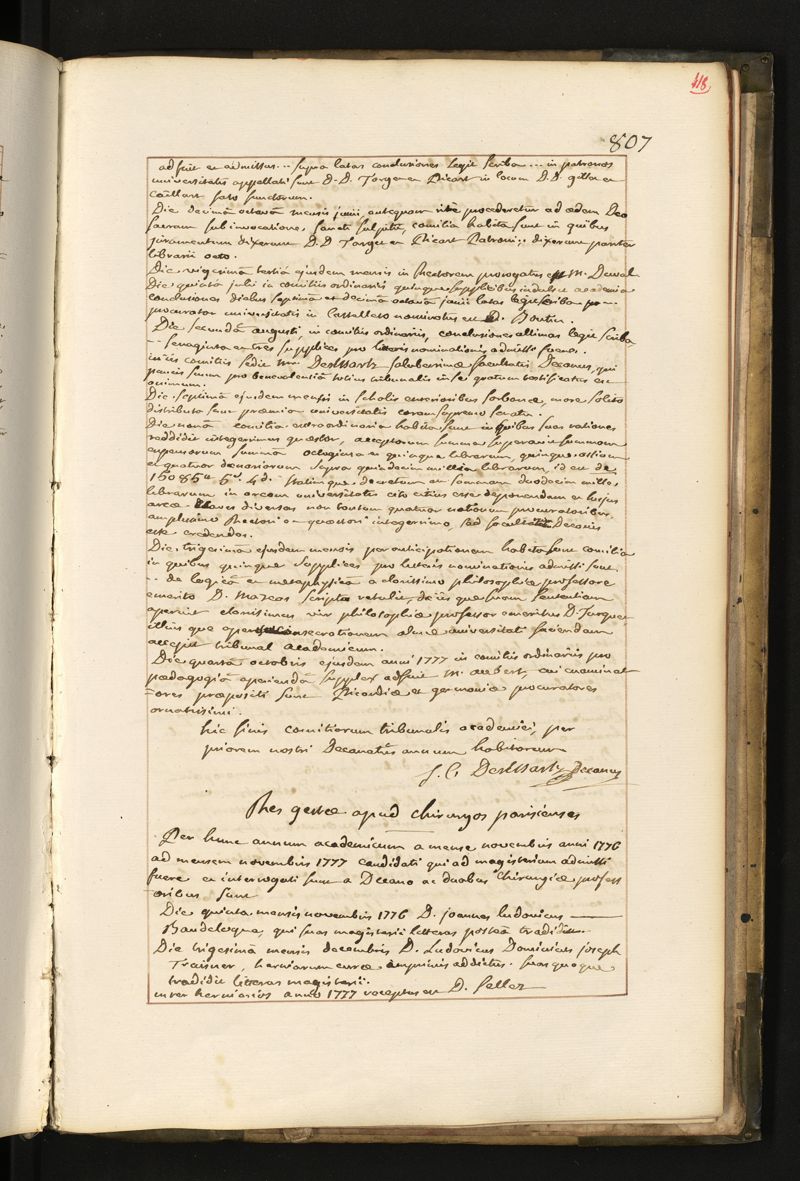 418
807
adfuit et admissus... supra latas conclusiones legit scriba... in patronos
universitatis appellati sunt D. D. Targe et Ricart in locum D. D. et
Caillart fato functorum.
Die decimâ octavâ mensis junii, antequam ritè procederetur ad aedem Deo
sacram sub invocatione, sancti sulpitii, comitia habita sunt in quibus
juramentum dixerunt D. D Targe et Ricart Patroni; dixerunt pariter
librarii octo.
Die vigesimâ tertiâ ejusdem mensis in Rectorem prorogatus est M. Duval
Die quinta julii in comitiis ordinariis quinque supplicibus indulsit academia
conclusiones diebus septimâ et decimâ octavâ junii latas legit scriba
procurator universitatis in Castelleto nominatus est D. Boutin.
Die secundâ augusti, in comitiis ordinariis, conclusiones ultimas legit scriba
-- sexaginta et tres supplices pro litteris nominationis admissi fuere.
in iis comitiis sedit mr. DesEssartz saluberrimae facultatis Decanus, qui
paucis suum pro benevolentiâ totius tribunalis in se gratum testificatus est
animum.
Die septimâ ejusdem mensis in scholis exterioribus sorbonae, more solito
distributa sunt praemia universitatis coram supremo senatu.
Die nonâ comitia extraordinaria habita sunt in quibus suas rationes
reddidit integerrimus quaestor, acceptorum summa superavit summam
expensorum summâ octoginta et quinque librarum, quinque assium
et quatuor denariorum supra quindecim millia librarum, id est de
15085tt 5s 4d. statimque decretum est summam duodecim mille
librarum in arcam universitatis citò citius esse deponendam et hujus
arcae claves diversas non tantum quatuor nationum procuratoribus,
amplissimo Rectori et quaestori integerrimo, sed facultatum Decanis
esse credendas.
Die trigesimâ ejusdem mensis per anticipationem habita sunt comitia
in quibus quinque supplices pro litteris nominationis admissi sunt.
-- de logicâ et metaphysicâ a clarissimo philosophiae professore
emerito D. Marcas scripta retulit, de iis que suam sententiam
aperuit clarissimus vir philosophiae professor emeritus D. Turquet
illius que operis consecrationem almae universitati faciendam
accepit tribunal academicum.
Die quartâ octobris ejusdem anni 1777 in comitiis ordinariis pro
paedagogiâ aperiendâ supplex adfuit M. aubert, cui examinat
ores praepositi sunt Picardiae et germaniae procuratores
ornatissimi.
hic finis comitiorum tribunalis academici, per
priorem nostri Decanatûs annum habitorum
J. C DesEssartz Decanus
Res gestae apud chirurgos parisienses
Per hunc annum academicum a mense novembris anni 1776
ad mensem novembris 1777 candidati qui ad magisterium admissi
fuere et interrogati sunt a Decano ac duobus Chirurgiae profess
oribus sunt
Die quinta mensis novembris 1776 D. joannes ludovicus
Baudelocque, qui suas magisterii litteras posteà tradidit
Die trigesimâ mensis decembris D. Ludovicus Dominicus joseph
Traisner, herniarum curae imprimis addictus. suas quoque
tradidit litteras magisterii.
inter herniarios anno 1777 receptus est D. Seller